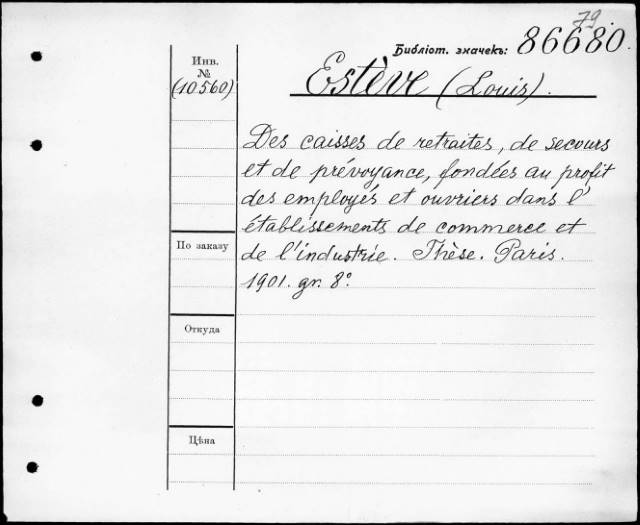 79.
Библіот. значекъ: 86680.
Инв.
№
(10560)
Estève (Louis).
Des caisses de retraites, de secours
et de prévoyance, fondées au profit
des employés et ouvriers dans l'
établissements de commerce et
de l'industrie. Thèse. Paris.
1901. gr. 8º.
По заказу
Откуда
Цѣна